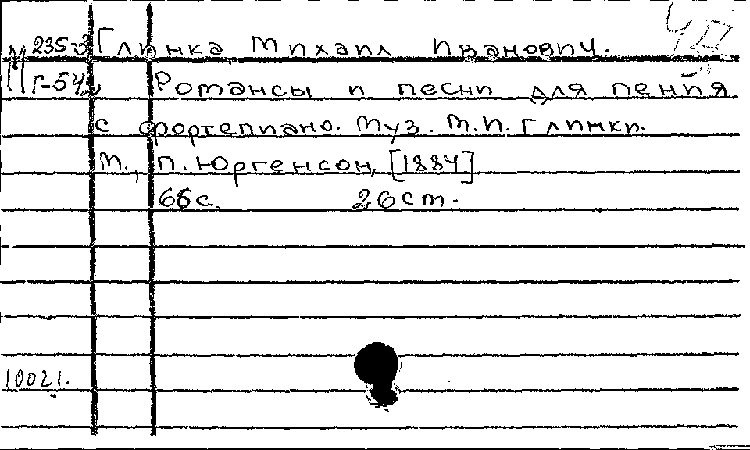 235-3 Глинка Михаил Иванович.
Г-54 Романсы и песни для пения
с фортепиано. Муз. М.И. Глинки.
М., П. Юргенсон, [1884]
66с. 26 см.
10021.